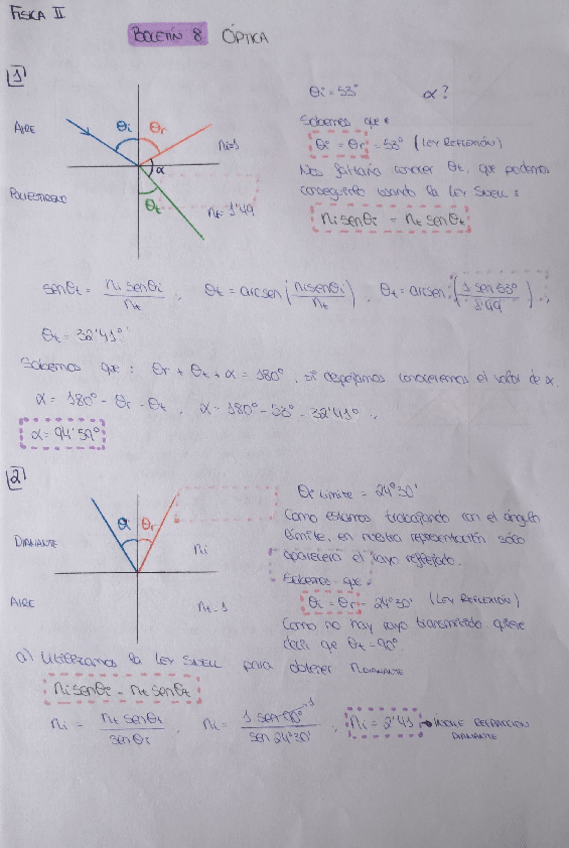 FÍSICA II
BOLETÍN 8 ÓPTICA
1
θi = 53° α?
Sabemos que:
AIRE θi θr ni=1 θi = θr = 53° (LEY REFLEXIÓN)
α Nos faltaría conocer θt, que podemos
POLIESTIRENO θt nt = 1'49 conseguirlo usando la LEY SNELL:
ni senθi = nt senθt
senθt = ni senθi / nt , θt = arcsen (ni senθi / nt) , θt = arcsen (1 sen 53° / 1'49) ,
θt = 32'41°
Sabemos que: θr + θt + α = 180°, si despejamos conoceremos el valor de α.
α = 180° - θr - θt , α = 180° - 53° - 32'41° ,
α = 94'59°
2
θi Límite = 24°30'
Como estamos trabajando con el ángulo
límite, en nuestra representación sólo
aparecerá el rayo reflejado.
DIAMANTE θi θr ni
Sabemos que:
AIRE nt = 1 θi = θr = 24°30' (LEY REFLEXIÓN)
Como no hay rayo transmitido quiere
decir que θt = 90°
a) Utilizamos la LEY SNELL para obtener nDIAMANTE
ni senθi = nt senθt
ni = nt senθt / senθi , ni = 1 sen 90° 1 / sen 24°30' , ni = 2'41 → ÍNDICE REFRACCIÓN
DIAMANTE